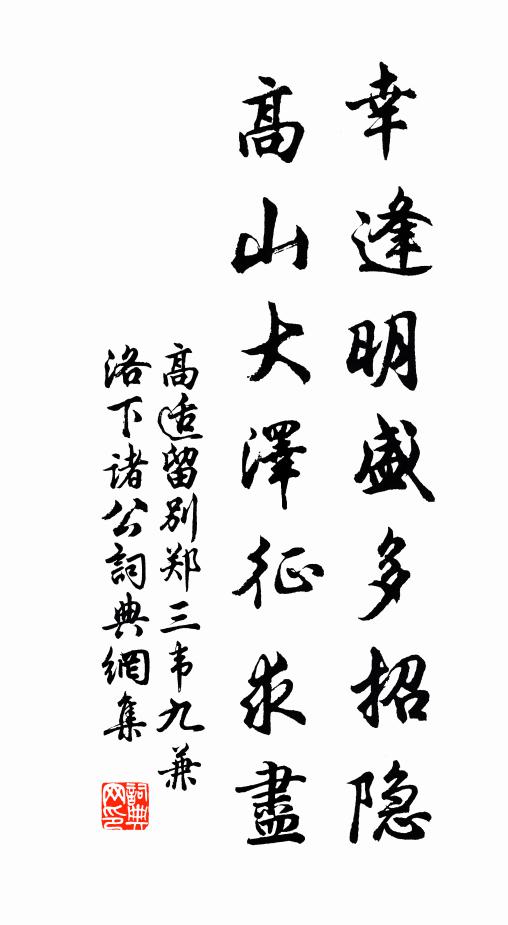 幸逢明盛多招隐
高山大澤征求盡
高适留别郑三韦九兼
洛下诸公詞典網集
詞典
网印